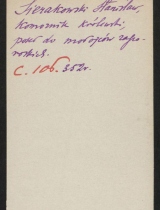 Sierakowski Stanisław,
komornik królewski,
poseł do mołojców zapo-
roskich.
C. 106. 352v.